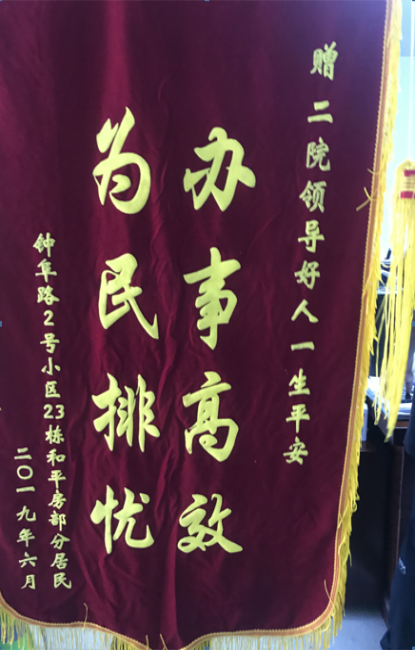 赠二院领导好人一生平安
办事高效
为民排忧
钟阜路2号小区23栋和平房部分居民
二〇一九年六月